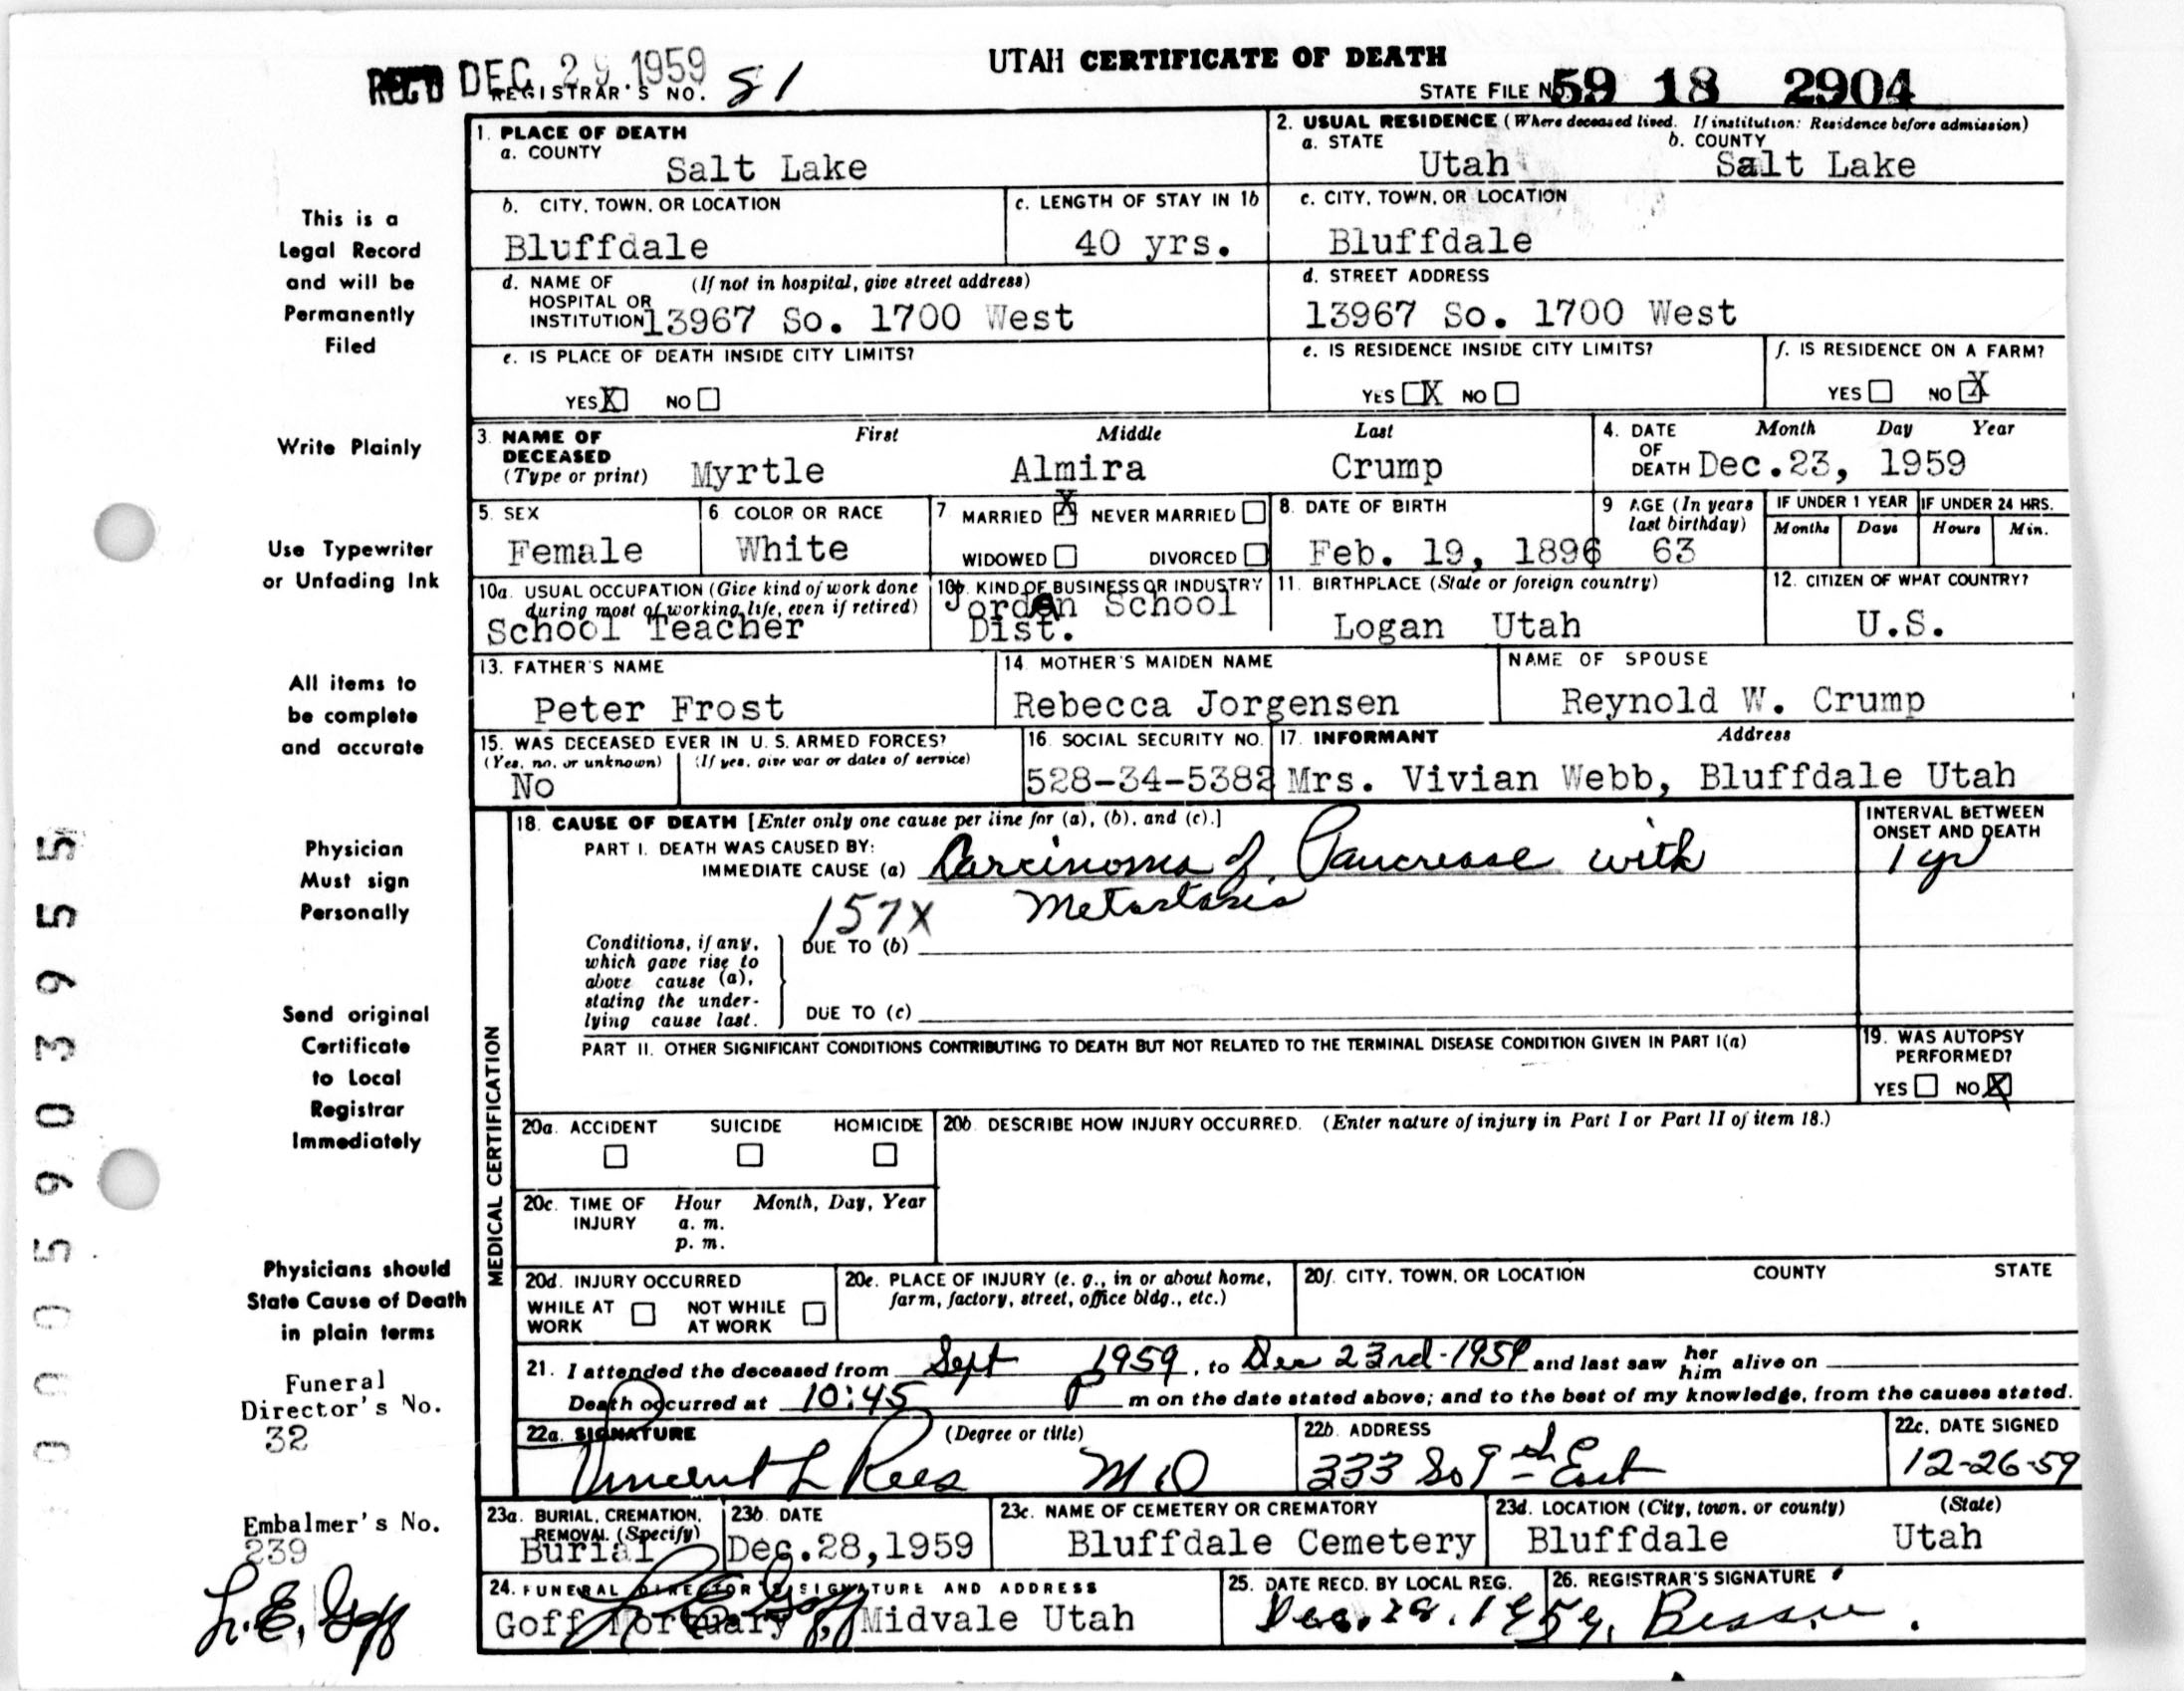 REC'D DEC 29 1959
REGISTRAR'S NO. 81
UTAH CERTIFICATE OF DEATH
STATE FILE NO. 59 18 2904
1. PLACE OF DEATH
a. COUNTY
Salt Lake
2. USUAL RESIDENCE (Where deceased lived. If institution: Residence before admission)
a. STATE
Utah
b. COUNTY
Salt Lake
b. CITY, TOWN, OR LOCATION
Bluffdale
c. LENGTH OF STAY IN 1b
40 yrs.
c. CITY, TOWN, OR LOCATION
Bluffdale
d. NAME OF (If not in hospital, give street address)
HOSPITAL OR
INSTITUTION 13967 So. 1700 West
d. STREET ADDRESS
13967 So. 1700 West
e. IS PLACE OF DEATH INSIDE CITY LIMITS?
YES X NO
e. IS RESIDENCE INSIDE CITY LIMITS?
YES X NO
f. IS RESIDENCE ON A FARM?
YES NO X
3. NAME OF DECEASED
(Type or print)
First Middle Last
Myrtle Almira Crump
4. DATE OF DEATH
Month Day Year
Dec.23, 1959
5. SEX
Female
6 COLOR OR RACE
White
7 MARRIED X NEVER MARRIED
WIDOWED DIVORCED
8. DATE OF BIRTH
Feb. 19, 1896
9 AGE (In years last birthday)
63
IF UNDER 1 YEAR
Months Days
IF UNDER 24 HRS.
Hours Min.
10a. USUAL OCCUPATION (Give kind of work done
during most of working life, even if retired)
School Teacher
10b. KIND OF BUSINESS OR INDUSTRY
Jordan School
Dist.
11. BIRTHPLACE (State or foreign country)
Logan Utah
12. CITIZEN OF WHAT COUNTRY?
U.S.
13. FATHER'S NAME
Peter Frost
14. MOTHER'S MAIDEN NAME
Rebecca Jorgensen
NAME OF SPOUSE
Reynold W. Crump
15. WAS DECEASED EVER IN U. S. ARMED FORCES?
(Yes, no, or unknown) (If yes, give war or dates of service)
No
16. SOCIAL SECURITY NO.
528-34-5382
17. INFORMANT Address
Mrs. Vivian Webb, Bluffdale Utah
MEDICAL CERTIFICATION
18. CAUSE OF DEATH [Enter only one cause per line for (a), (b), and (c).]
PART I. DEATH WAS CAUSED BY:
IMMEDIATE CAUSE (a) Carcinoma of Pancrease with
Metastasis
157X
INTERVAL BETWEEN
ONSET AND DEATH
1 yr
Conditions, if any,
which gave rise to
above cause (a),
stating the under-
lying cause last.
DUE TO (b)
DUE TO (c)
PART II. OTHER SIGNIFICANT CONDITIONS CONTRIBUTING TO DEATH BUT NOT RELATED TO THE TERMINAL DISEASE CONDITION GIVEN IN PART I(a)
19. WAS AUTOPSY
PERFORMED?
YES NO X
20a. ACCIDENT SUICIDE HOMICIDE
20b. DESCRIBE HOW INJURY OCCURRED. (Enter nature of injury in Part I or Part II of item 18.)
20c. TIME OF INJURY
Hour Month, Day, Year
a. m.
p. m.
20d. INJURY OCCURRED
WHILE AT WORK NOT WHILE AT WORK
20e. PLACE OF INJURY (e. g., in or about home,
farm, factory, street, office bldg., etc.)
20f. CITY, TOWN, OR LOCATION COUNTY STATE
21. I attended the deceased from Sept 1959, to Dec 23rd-1959 and last saw her him alive on
Death occurred at 10:45 P m on the date stated above; and to the best of my knowledge, from the causes stated.
22a. SIGNATURE (Degree or title)
Vincent L Rees M D
22b. ADDRESS
333 So 9th East
22c. DATE SIGNED
12-26-59
23a. BURIAL, CREMATION,
REMOVAL (Specify)
Burial
23b. DATE
Dec.28,1959
23c. NAME OF CEMETERY OR CREMATORY
Bluffdale Cemetery
23d. LOCATION (City, town, or county) (State)
Bluffdale Utah
24. FUNERAL DIRECTOR'S SIGNATURE AND ADDRESS
L E Goff
Goff Mortuary, Midvale Utah
25. DATE RECD. BY LOCAL REG.
Dec. 28, 1959,
26. REGISTRAR'S SIGNATURE
Bessie
This is a
Legal Record
and will be
Permanently
Filed
Write Plainly
Use Typewriter
or Unfading Ink
All items to
be complete
and accurate
Physician
Must sign
Personally
Send original
Certificate
to Local
Registrar
Immediately
Physicians should
State Cause of Death
in plain terms
Funeral
Director's No.
32
Embalmer's No.
239
L. E. Goff
0005903955